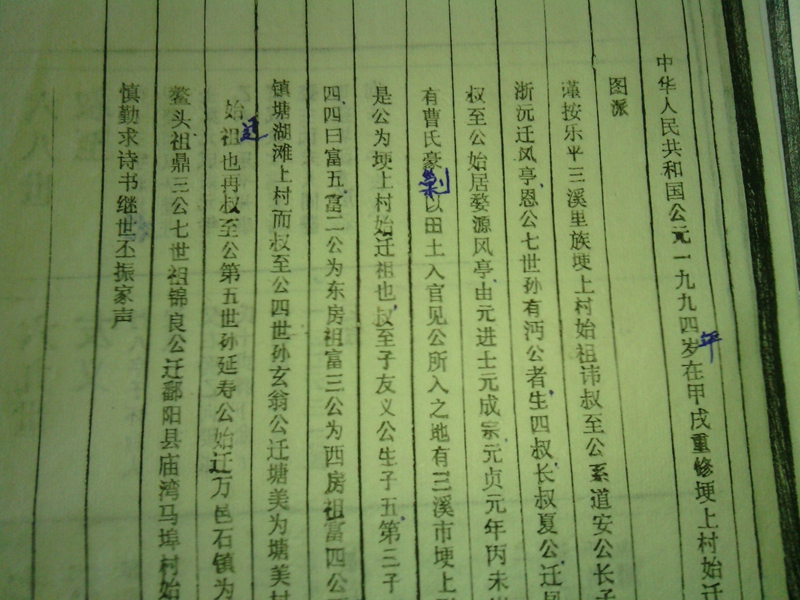 中华人民共和国公元一九九四年岁在甲戌重修埂上村始迁
图派
谨按乐平三溪里族埂上村始祖讳叔至公系道安公长子
浙沅迁凤亭恩公七世孙有沔公者生四叔长叔夏公迁居
叔至公始居婺源风亭由元进士元成宗元贞元年丙未
有曹氏豪剿以田土入官见公所入之地有三溪市埂上
是公为埂上村始迁祖也叔至子友义公生子五第三子
四四曰富五富二公为东房祖富三公为西房祖富四公
镇塘湖滩上村而叔至公四世孙玄翁公迁塘美为塘美村
始迁祖也再叔至公第五世孙延寿公始迁万邑石镇为
鳌头祖鼎三公七世祖锦良公迁鄱阳县庙湾马埠村始
慎勤求诗书继世丕振家声